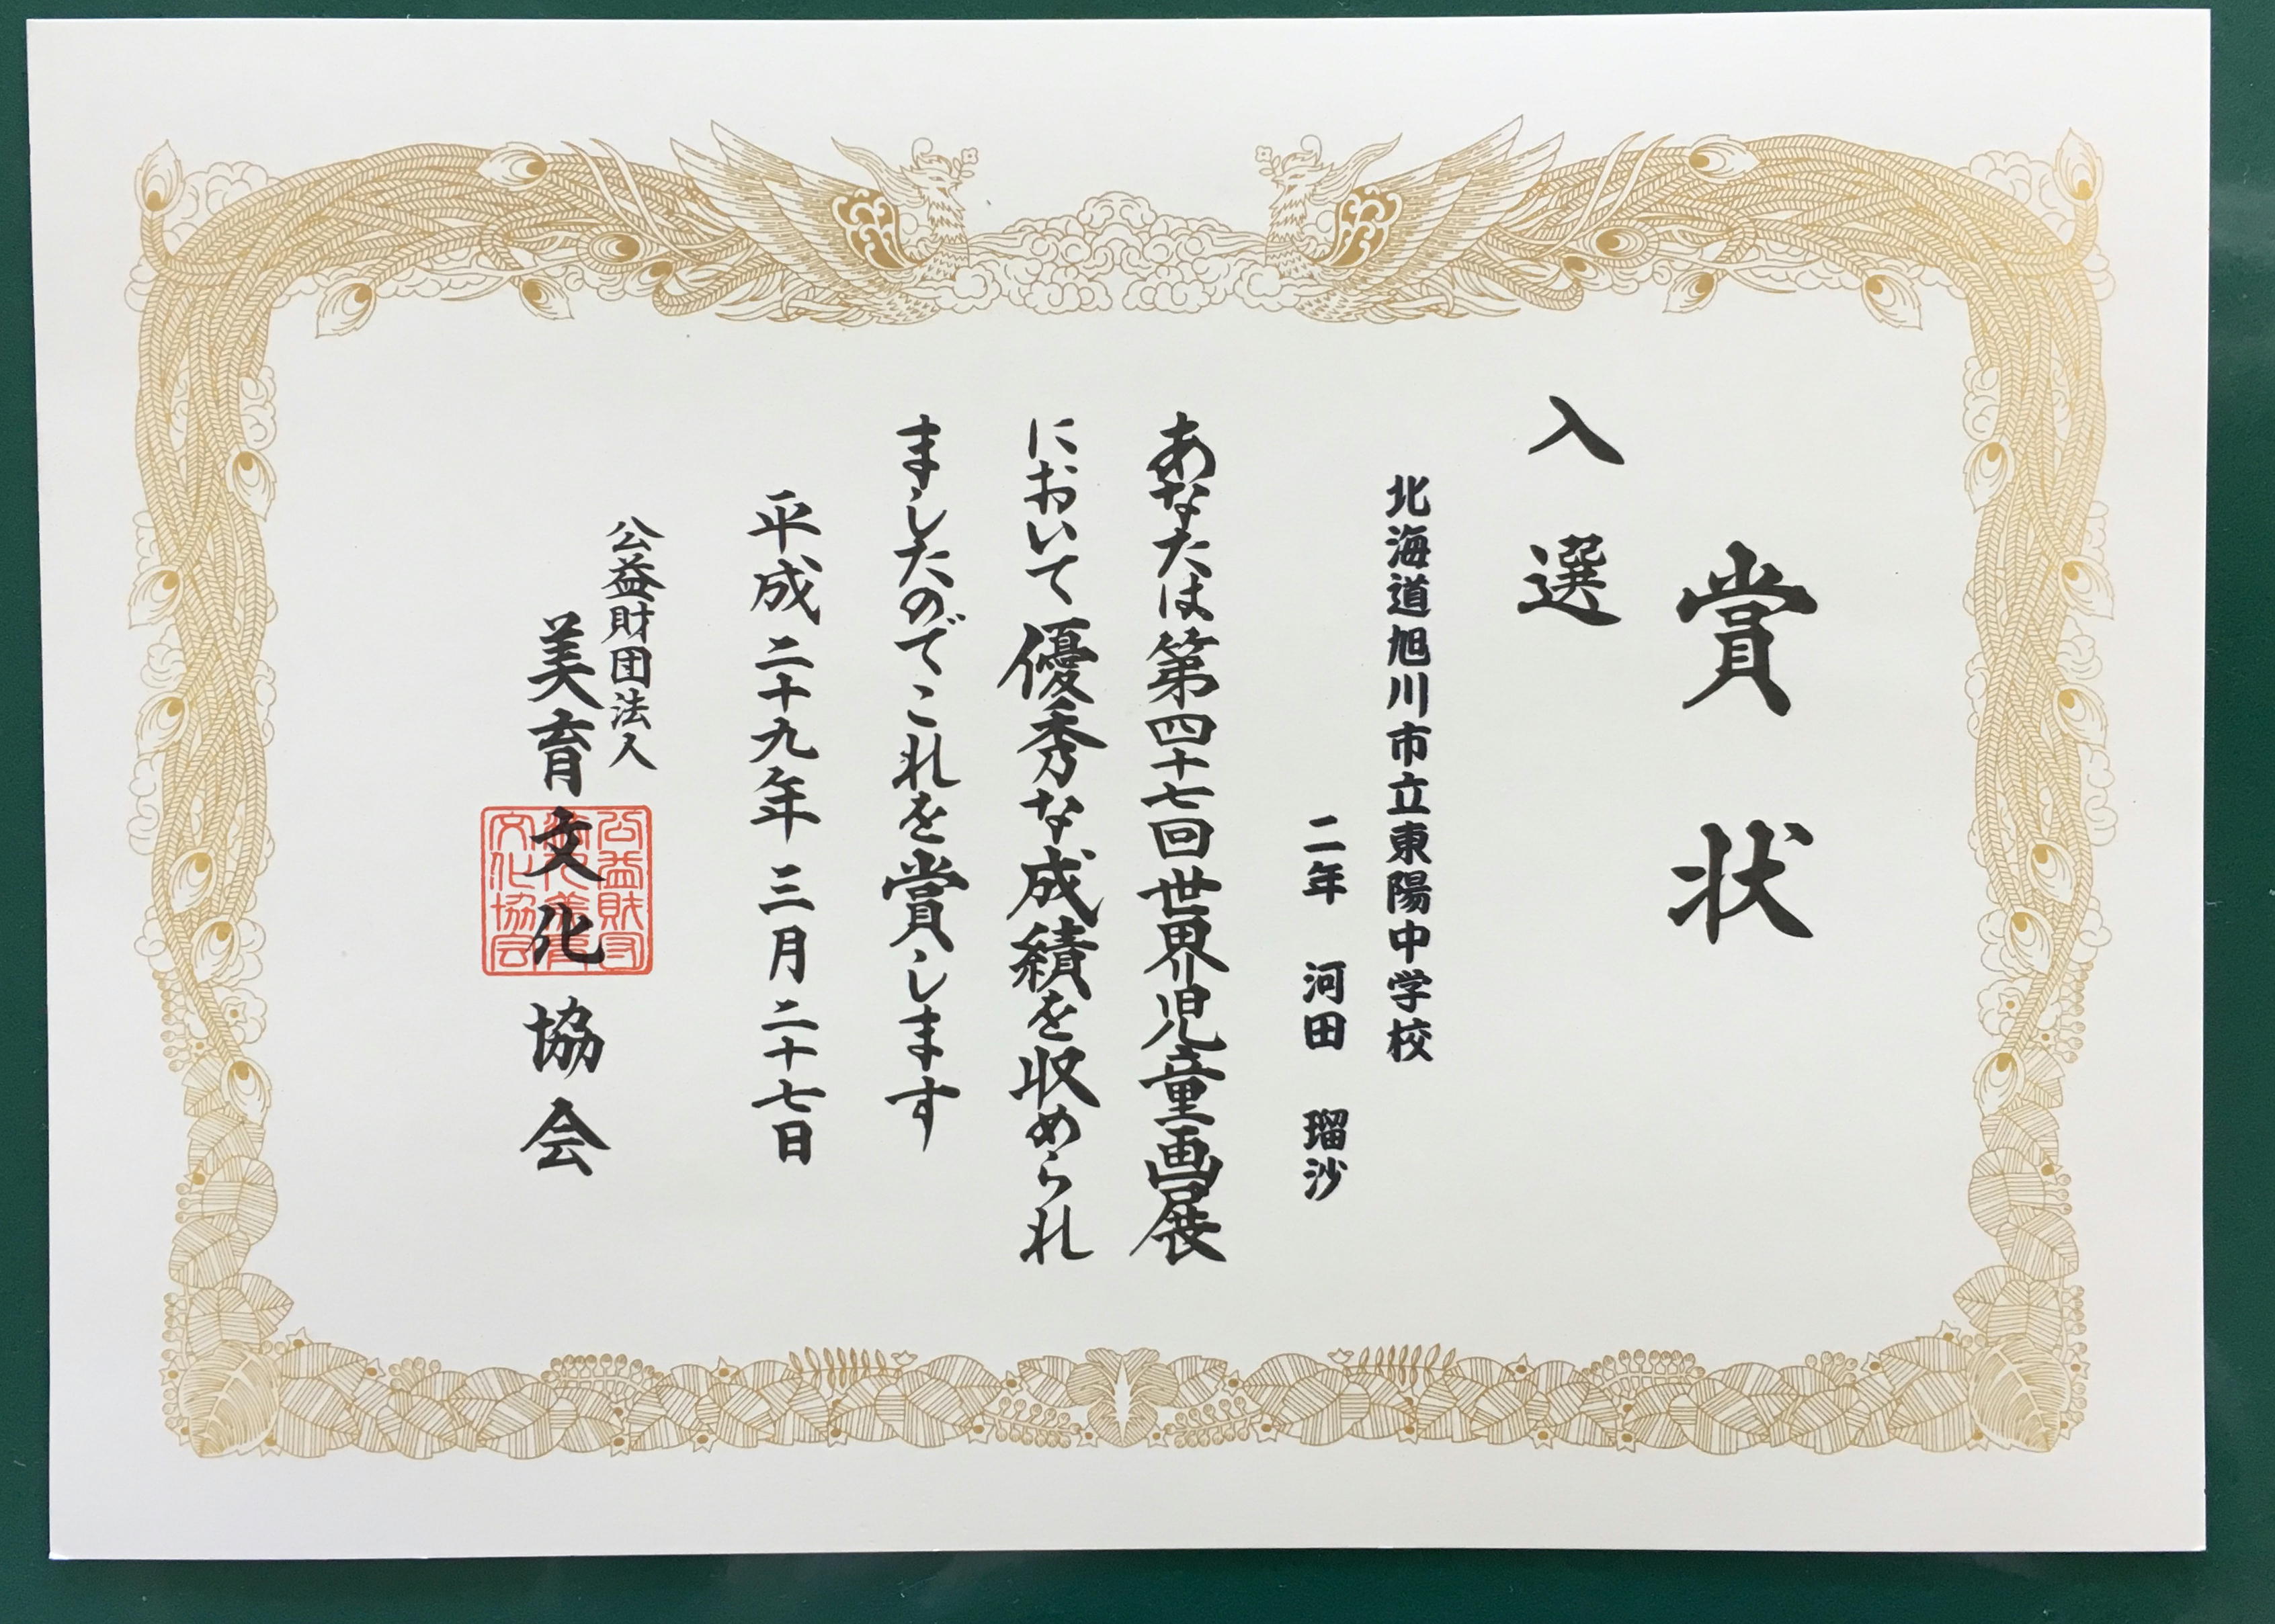 賞状
入選
北海道旭川市立東陽中学校
二年 河田 瑠沙
あなたは第四十七回世界児童画展
において優秀な成績を収められ
ましたのでこれを賞します
平成二十九年三月二十七日
公益財団法人
美育文化協会